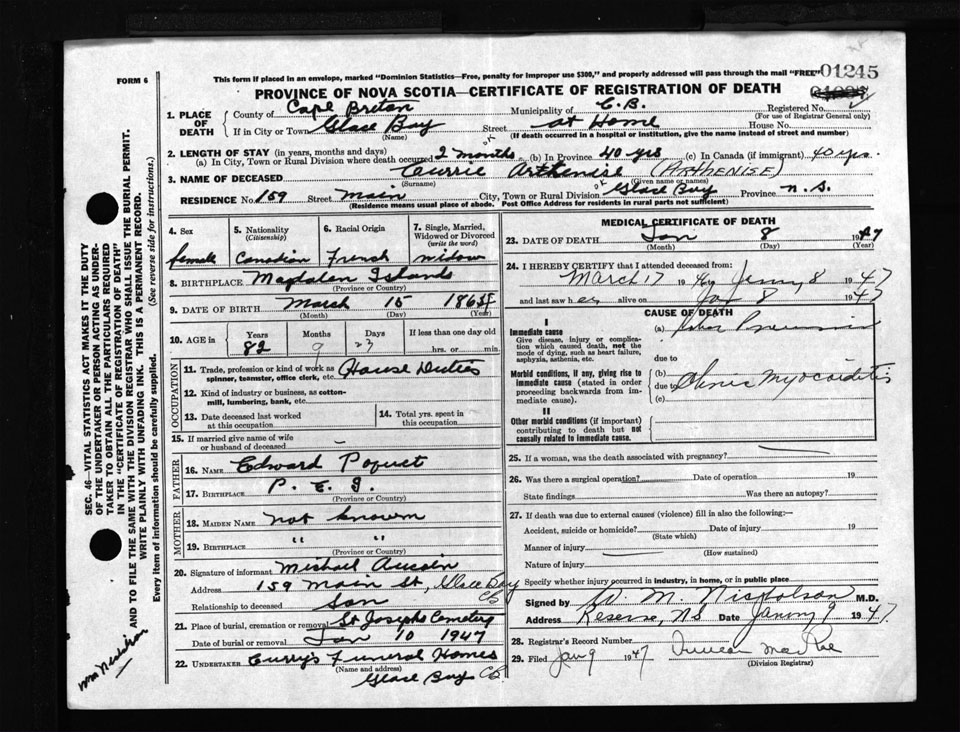 FORM 6
This form if placed in an envelope, marked "Dominion Statistics—Free, penalty for improper use $300," and properly addressed will pass through the mail "FREE"
01245
PROVINCE OF NOVA SCOTIA—CERTIFICATE OF REGISTRATION OF DEATH
1. PLACE OF DEATH
County of Cape Breton Municipality of C.B. Registered No.
(For use of Registrar General only)
If in City or Town Glace Bay Street at Home House No.
(Name) (If death occurred in a hospital or institution, give the name instead of street and number)
2. LENGTH OF STAY (in years, months and days)
(a) In City, Town or Rural Division where death occurred 2 months (b) In Province 40 yrs (c) In Canada (if immigrant) 40 yrs.
3. NAME OF DECEASED Currie Arthenise (ARTHENISE)
(Surname) (Given name or names)
RESIDENCE No. 159 Street Main City, Town or Rural Division Glace Bay Province N.S.
(Residence means usual place of abode. Post Office Address for residents in rural parts not sufficient)
4. Sex 5. Nationality (Citizenship) 6. Racial Origin 7. Single, Married, Widowed or Divorced (write the word)
female Canadian French widow
8. BIRTHPLACE Magdalen Islands
(Province or Country)
9. DATE OF BIRTH March 15
(Month) (Day) (Year)
10. AGE in Years Months Days If less than one day old
82 9 23 hrs. or min.
OCCUPATION
11. Trade, profession or kind of work as spinner, teamster, office clerk, etc. House Duties
12. Kind of industry or business, as cotton-mill, lumbering, bank, etc.
13. Date deceased last worked at this occupation
14. Total yrs. spent in this occupation
15. If married give name of wife or husband of deceased –
FATHER
16. NAME Edward Poquet
17. BIRTHPLACE P. E. I.
(Province or Country)
MOTHER
18. MAIDEN NAME not known
19. BIRTHPLACE " "
(Province or Country)
20. Signature of informant Michael Aucoin
Address 159 Main St, Glace Bay CB
Relationship to deceased Son
21. Place of burial, cremation or removal St Josephs Cemetery
Date of burial or removal Jan 10 1947
22. UNDERTAKER Curry's Funeral Homes
(Name and address)
Glace Bay CB
MEDICAL CERTIFICATE OF DEATH
23. DATE OF DEATH Jan 8 1947
(Month) (Day) (Year)
24. I HEREBY CERTIFY that I attended deceased from:
March 17 19 8 1947
and last saw her alive on Jan 8 1947
CAUSE OF DEATH
I
Immediate cause
Give disease, injury or complication which caused death, not the mode of dying, such as heart failure, asphyxia, asthenia, etc.
(a) Lobar Pneumonia
due to
Morbid conditions, if any, giving rise to immediate cause (stated in order proceeding backwards from immediate cause).
(b)
due to Chronic Myocarditis
(c)
II
Other morbid conditions (if important) contributing to death but not causally related to immediate cause.
25. If a woman, was the death associated with pregnancy?
26. Was there a surgical operation? Date of operation 19
State findings Was there an autopsy?
27. If death was due to external causes (violence) fill in also the following:—
Accident, suicide or homicide? Date of injury 19
(State which)
Manner of injury
(How sustained)
Nature of injury
Specify whether injury occurred in industry, in home, or in public place
Signed by W. M. Nicholson M.D.
Address Reserve, NS Date 1947
28. Registrar's Record Number
29. Filed Jan 9 1947 Duncan MacRae
(Division Registrar)
SEC. 46—VITAL STATISTICS ACT MAKES IT THE DUTY
OF THE UNDERTAKER OR PERSON ACTING AS UNDERTAKER
TO OBTAIN ALL THE PARTICULARS REQUIRED
IN THE "CERTIFICATE OF REGISTRATION OF DEATH"
AND TO FILE THE SAME WITH THE DIVISION REGISTRAR WHO SHALL ISSUE THE BURIAL PERMIT.
WRITE PLAINLY WITH UNFADING INK. THIS IS A PERMANENT RECORD.
Every item of information should be carefully supplied. (See reverse side for instructions.)